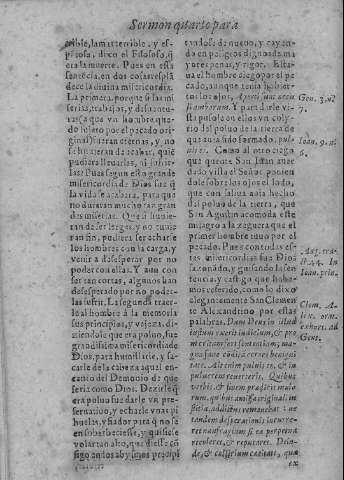 Sermon quarto para
rible, la mas terrible, y es-
pantosa, dixo el Filosofo, q
era la muerte. Pues en essa
sentécia, en dos cosas resplã
dece la divina misericordia.
La primera, porque si las mi
serias, trabajos, y
ça que vn hombre que-
dò sujeto por el pecado ori-
ginal durarã eternas, y no
se huvieran de acabar, quié
pudiera llevarlas, ni sufrir-
las? Pues segun esto grande
misericordia de Dios fue, q
la vida se acabara, para que
no duraran mucho tan gran
des miserias. Que si huvie-
ran de ser largas, y no tuvie
ran fin, pudiera ser echarse
los hombres con la carga, y
venir a desesperar por no
poder con ellas. Y aun con
ser tan cortas, algunos han
desesperado por no poder-
las sufrir. La segunda traer-
le al hombre à la memoria
sus principios, y vejeza, di-
ziendole que era polvo, fue
grandissima misericordia de
Dios, para humillarle, y sa-
carle de la cabeza aquel en-
canto del Demonio de que
seria como Dios. Dezirle q
era polvo fue darle vn pre-
servativo, y echarle vnas pi
huelas, y
ensoberbeciesse, y quisiesse
volar tan alto, que diesse cõ
sigo en los abysmos
tandose de nuevo, y cayen-
do en peligros de mayores ma
yores penas, y rigor. Esta-
va el hombre ciego por el pe
cado, aunque tenia habier-
tos los ojos, Aperti sunt oculi
amborum. Y para darle vis-
ta pusole en ellos vn coly-
rio del polvo de la tierra de
que avia sido formado, pul-
vis es. Como al otro ciego
que quenta San Iuan aver
dado vista el Señor ponien
dole sobre los ojos el lodo,
que con saliva avia hecho
del polvo de la tierra, que
San Agustin acomoda este
milagro a la zeguera que el
primer hombre tuvo por el
pecado. Pues con todas es-
tas misericordias fue Dios
sazonado, y guisando la sen
tencia, y castigo que habe-
mos referido, como lo dixo
elegantemente San Clemen
te Alexandrino por estas
palabras. Dum Deus in illud
ipsum exerit iudicium, & pro
mit transfert sententiam; ma-
gna sane condita erat benigni
tate. Ait enim pulvis es, & in
pulverem reverteris. Quibus
verbis, &
rum, quibus antiqua originalis in
iustitia, addictus remanebat: ut
tandem desperationis incurre-
ret naufragium si ea perpenà
recoleret, & reputaret. Dein-
de, & collyrium caetati, qua
ex
Gen. 3. v.
7.
Ioan. 9. v.
6.
Aug. tra-
ct. 44. In
Ioan. prin.
Clem. A-
lex. orat.
exhort. ad
Gent.